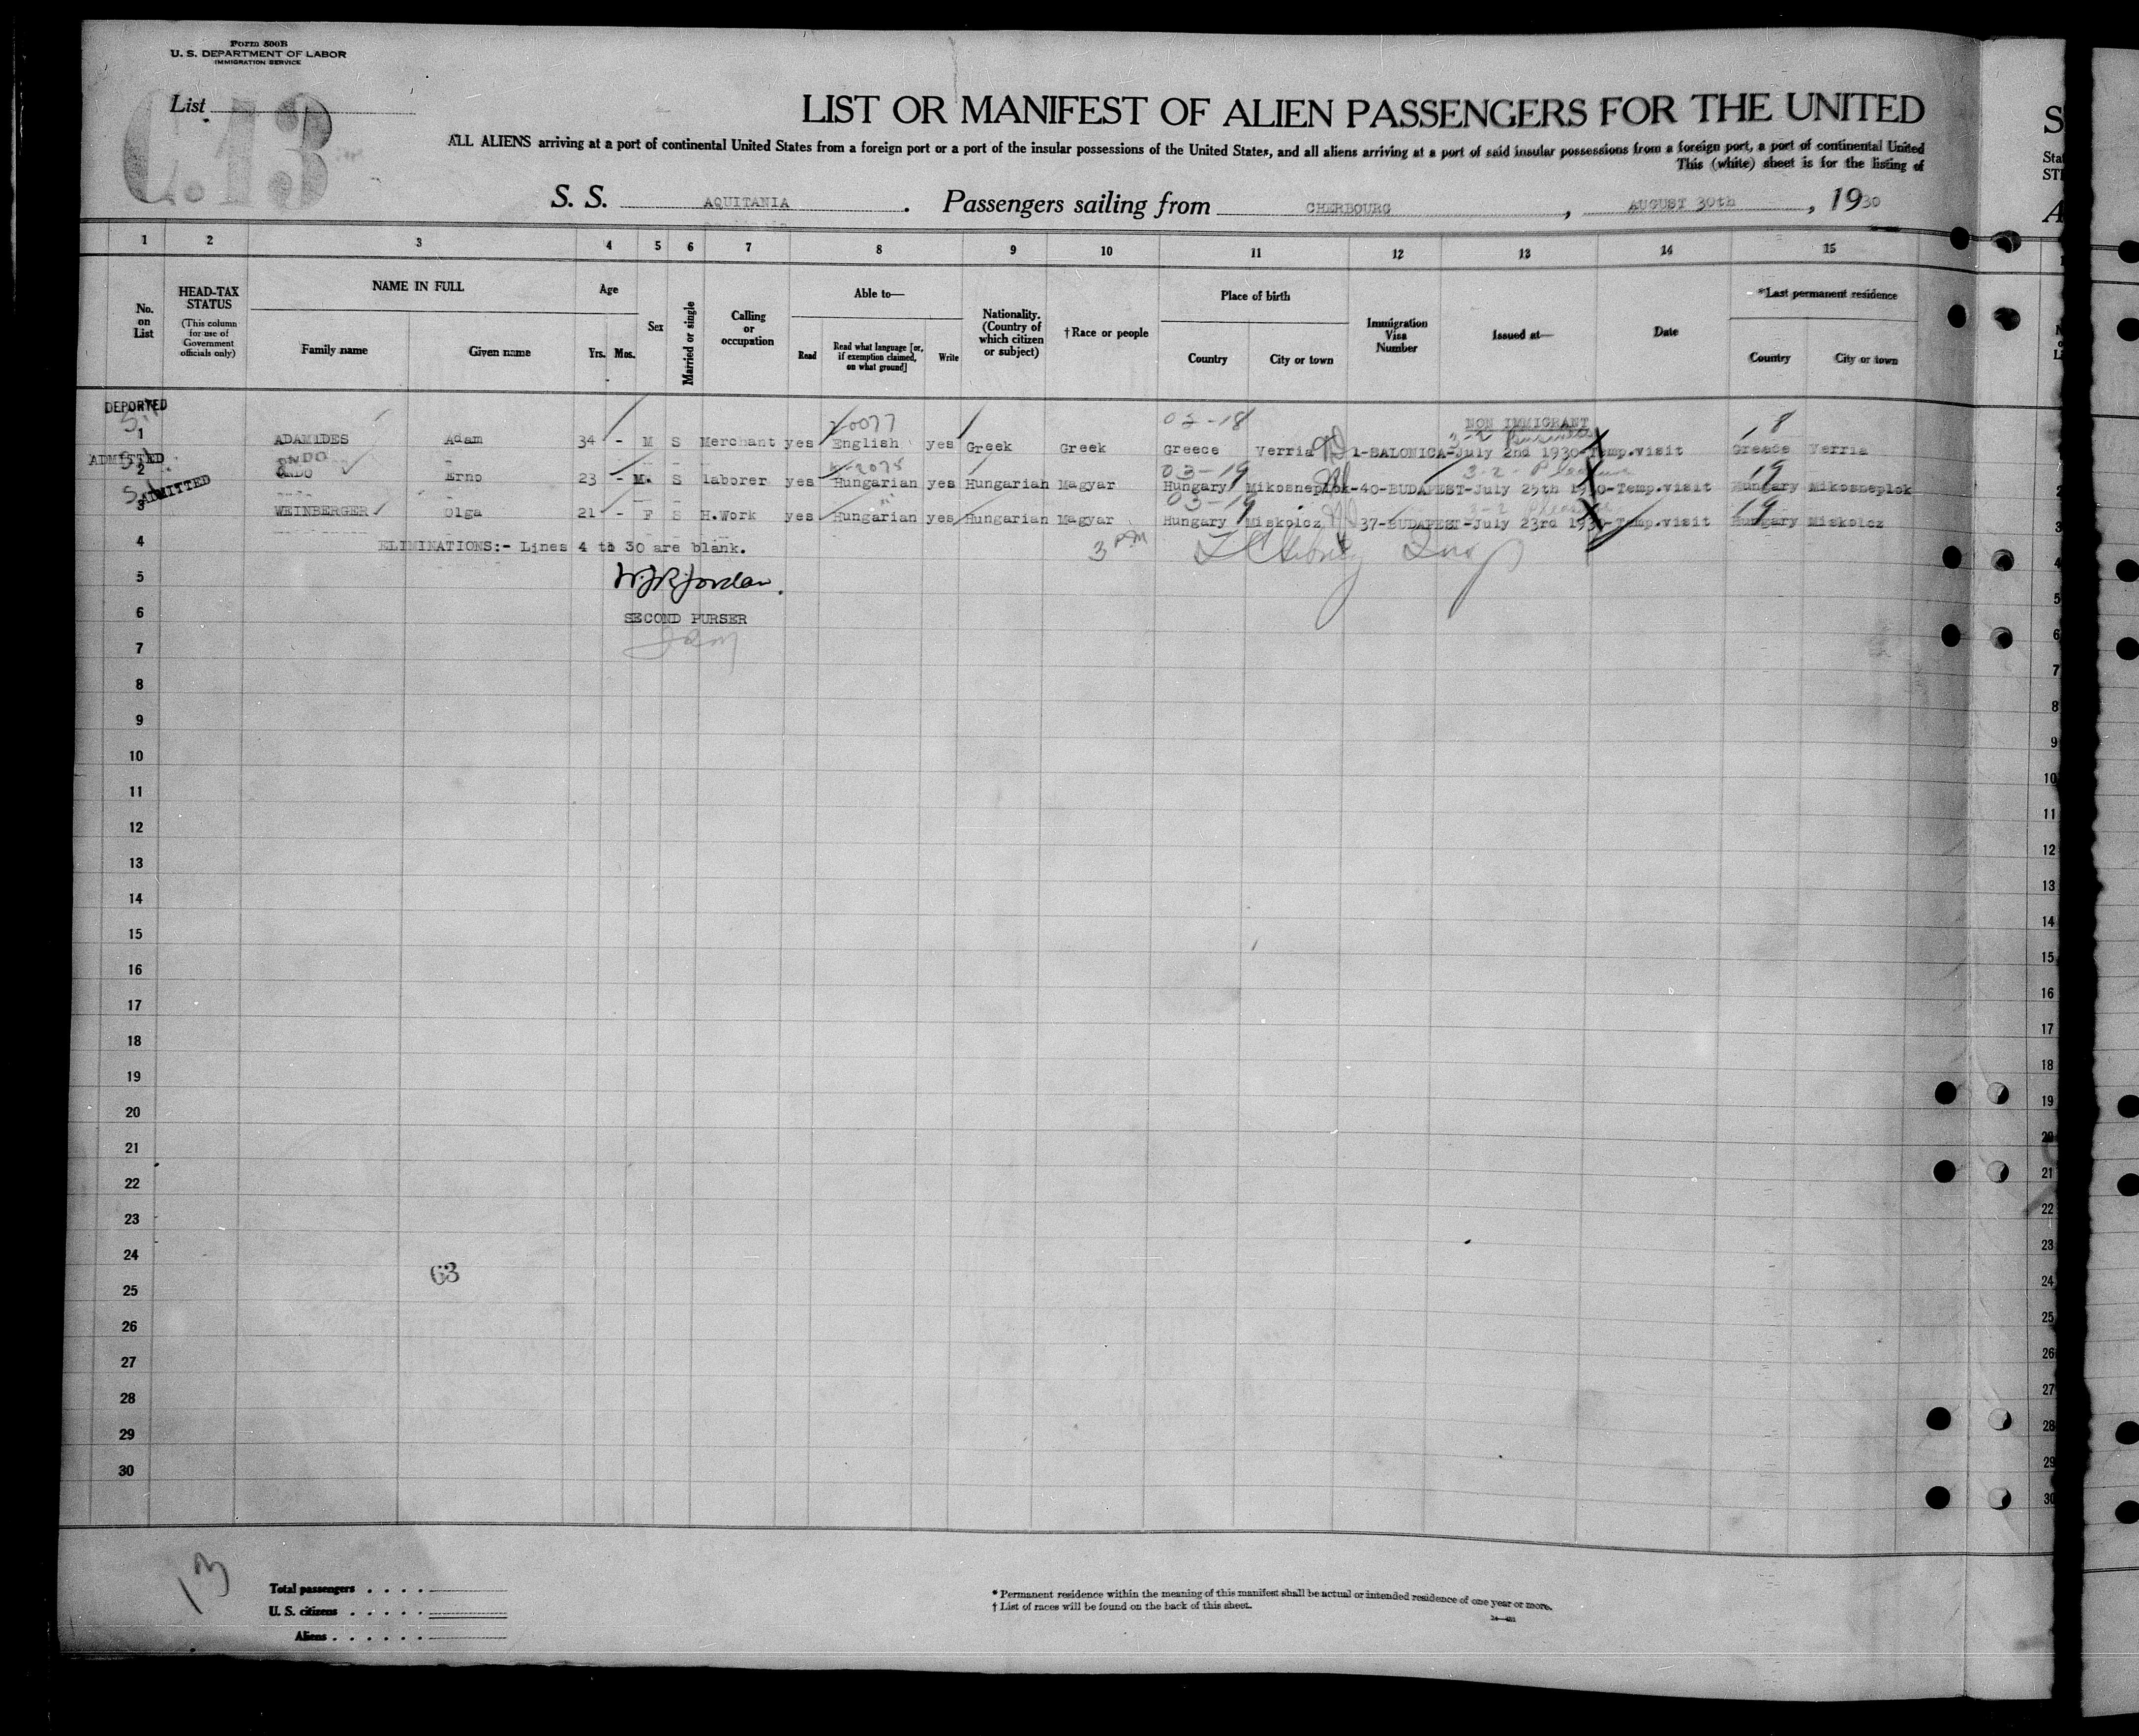 Form 500B
U. S. DEPARTMENT OF LABOR
IMMIGRATION SERVICE
List
C.13
LIST OR MANIFEST OF ALIEN PASSENGERS FOR THE UNITED
ALL ALIENS arriving at a port of continental United States from a foreign port or a port of the insular possessions of the United States, and all aliens arriving at a port of said insular possessions from a foreign port, a port of continental United
This (white) sheet is for the listing of
S. S. AQUITANIA. Passengers sailing from CHERBOURG, AUGUST 30th, 1930
1 2 3 4 5 6 7 8 9 10 11 12 13 14 15
No. on List
HEAD-TAX STATUS
(This column for use of Government officials only)
NAME IN FULL
Family name Given name
Age
Yrs. Mos.
Sex
Married or single
Calling or occupation
Able to—
Read
Read what language [or, if exemption claimed, on what ground]
Write
Nationality. (Country of which citizen or subject)
†Race or people
Place of birth
Country City or town
Immigration Visa Number
Issued at—
Date
*Last permanent residence
Country City or town
NON IMMIGRANT
DEPORTED
1 ADAMIDES Adam 34 - M S Merchant yes English yes Greek Greek Greece Verria 1-SALONICA-July 2nd 1930-Temp.visit Greece Verria
ADMITTED
2 ANDO Erno 23 - M. S laborer yes Hungarian yes Hungarian Magyar Hungary Mikosneplok-40-BUDAPEST-July 25th 1930-Temp.visit Hungary Mikosneplok
ADMITTED
3 WEINBERGER Olga 21 - F S H.Work yes Hungarian yes Hungarian Magyar Hungary Miskolcz 37-BUDAPEST-July 23rd 1930-Temp.visit Hungary Miskolcz
4 ELIMINATIONS:- Lines 4 to 30 are blank. 3 PM
5 W.J.R.Jordan.
6 SECOND PURSER
7
8
9
10
11
12
13
14
15
16
17
18
19
20
21
22
23
24
63
25
26
27
28
29
30
13
Total passengers
U. S. citizens
Aliens
* Permanent residence within the meaning of this manifest shall be actual or intended residence of one year or more.
† List of races will be found on the back of this sheet.